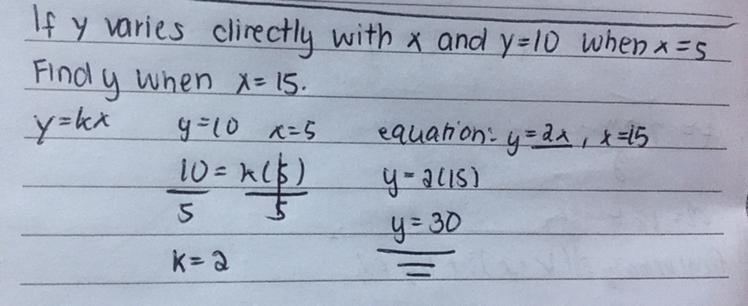 If y varies directly with x and y=10 when x=5
Find y when x=15.
y=kx y=10 x=5 equation: y=2x, x=15
10 = k(5) y=2(15)
5 5 y=30
k=2